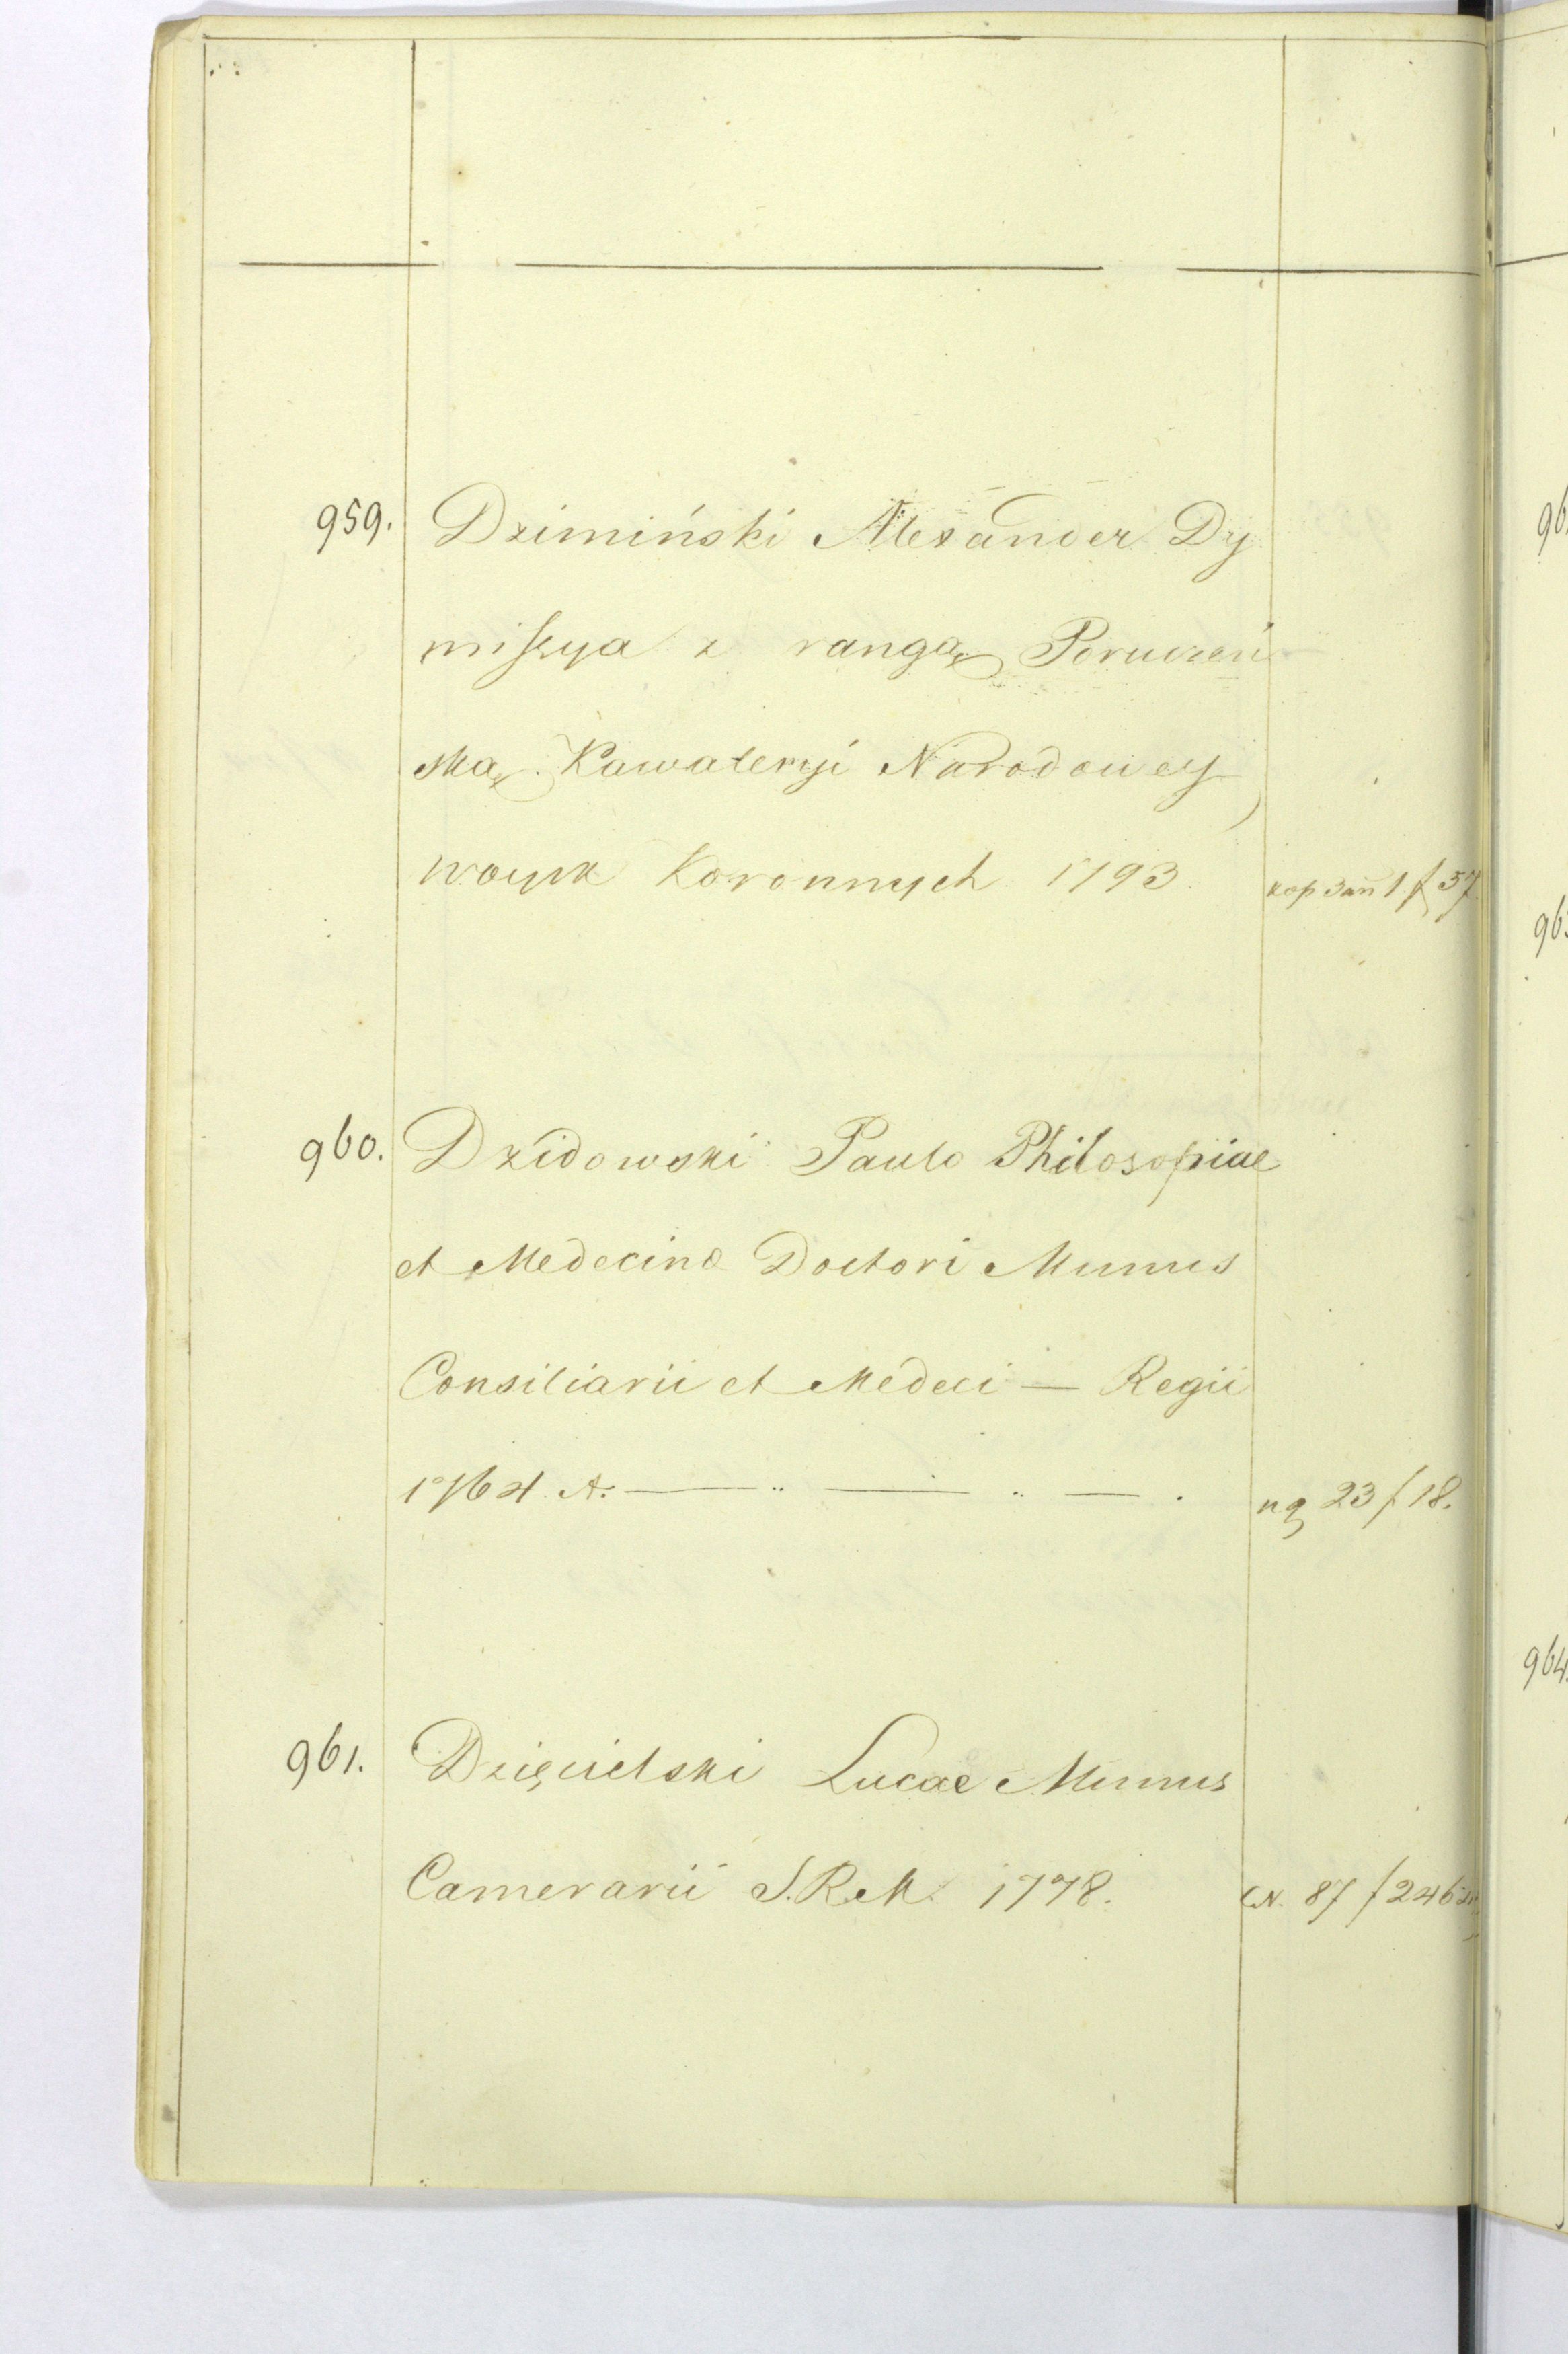 959. Dzimiński Alexander Dy
missya z rangą Poruczni
ską Kawaleryi Narodowey
woysk Koronnych 1793 кор зап 1 f 57
960. Dzidowski Paulo Philosopiae
et Medecinæ Doctori Munus
Consiliarii et Medeci — Regii
1764 A. — .. — .. — . 23 f 18.
961. Dzięcielski Lucae Munus
Camerarii S.R.M. 1778. 87 f 246
964.